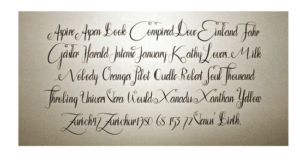 Apire Apen Book Compired Door Einland Fahr
Garter Harald Interne January Kathy Lover Milk
Nobody Oranga Pilot Quelle Robert Soul Thousand
Univers Vera Would Xanadu Xanthan Yellow
Zurich 1980 68 153 77 Birth.